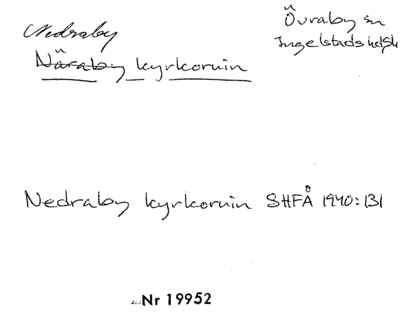 Nedraby
Näraby kyrkoruin
Övraby sn
Ingelstads hd, Sk
Nedraby kyrkoruin SHFÅ 1940:131
Nr 19952